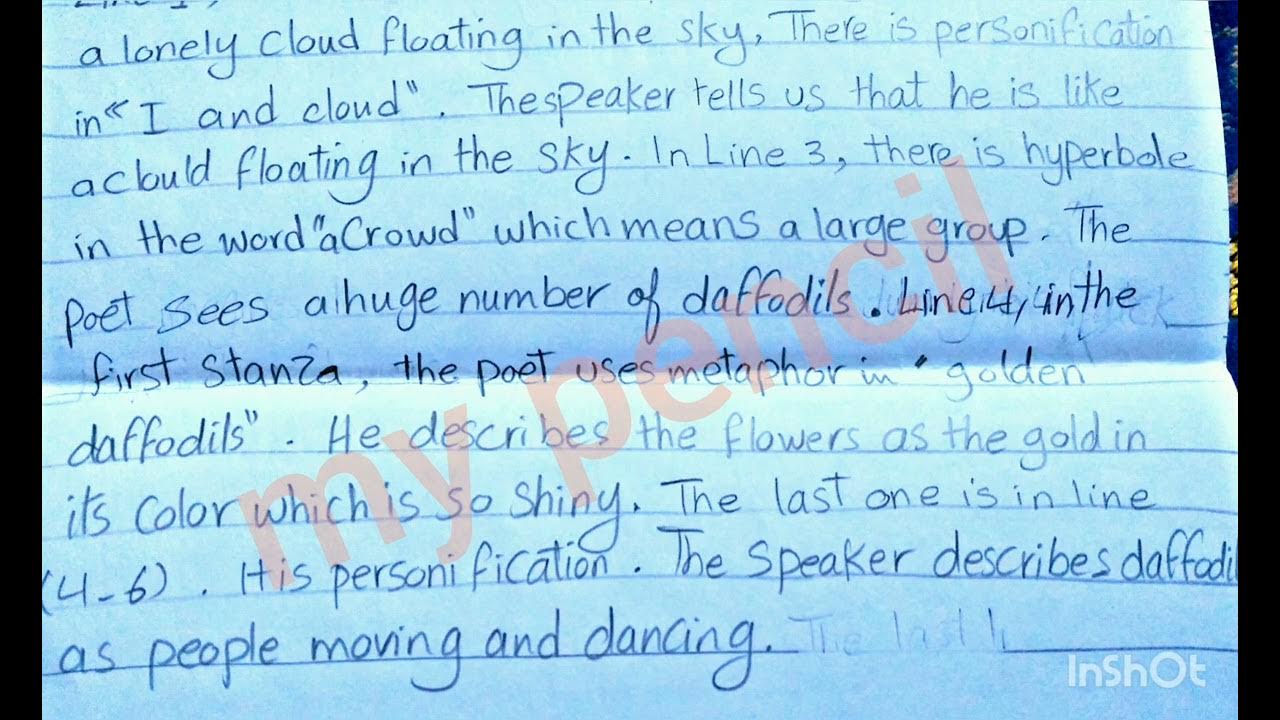 a lonely cloud floating in the sky, There is personification
in “I and cloud”. The speaker tells us that he is like
a clould floating in the sky. In Line 3, there is hyperbole
in the word “a Crowd” which means a large group. The
poet sees a huge number of daffodils. Line 4, in the
first stanza, the poet uses metaphor in “golden
daffodils”. He describes the flowers as the gold in
its color which is so shiny. The last one is in line
(4-6). His personification. The speaker describes daffodil
as people moving and dancing. The last
my pencil
InShOt